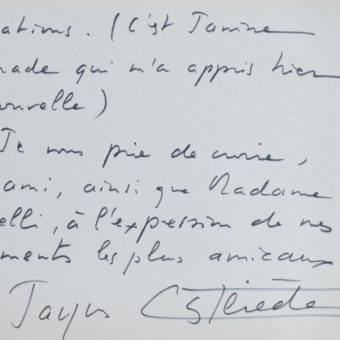 ations. (C'est Janine
nade qui m'a appris hier
ouvelle)
Je vous prie de croire,
ami, ainsi que Madame
elli, à l'expression de mes
ments les plus amicaux